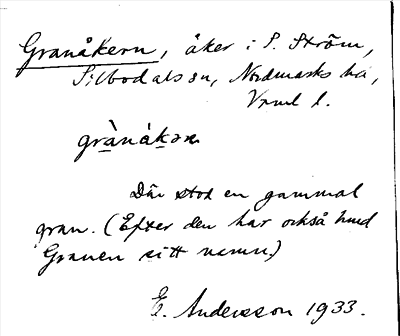 Granåkern, åker i S. Ström,
Silbodals sn, Nordmarks hd,
Vrml l.
grànåkər
Där stod en gammal
gran. (Efter den har också hmd
Granen sitt namn.)
E. Andersson 1933.